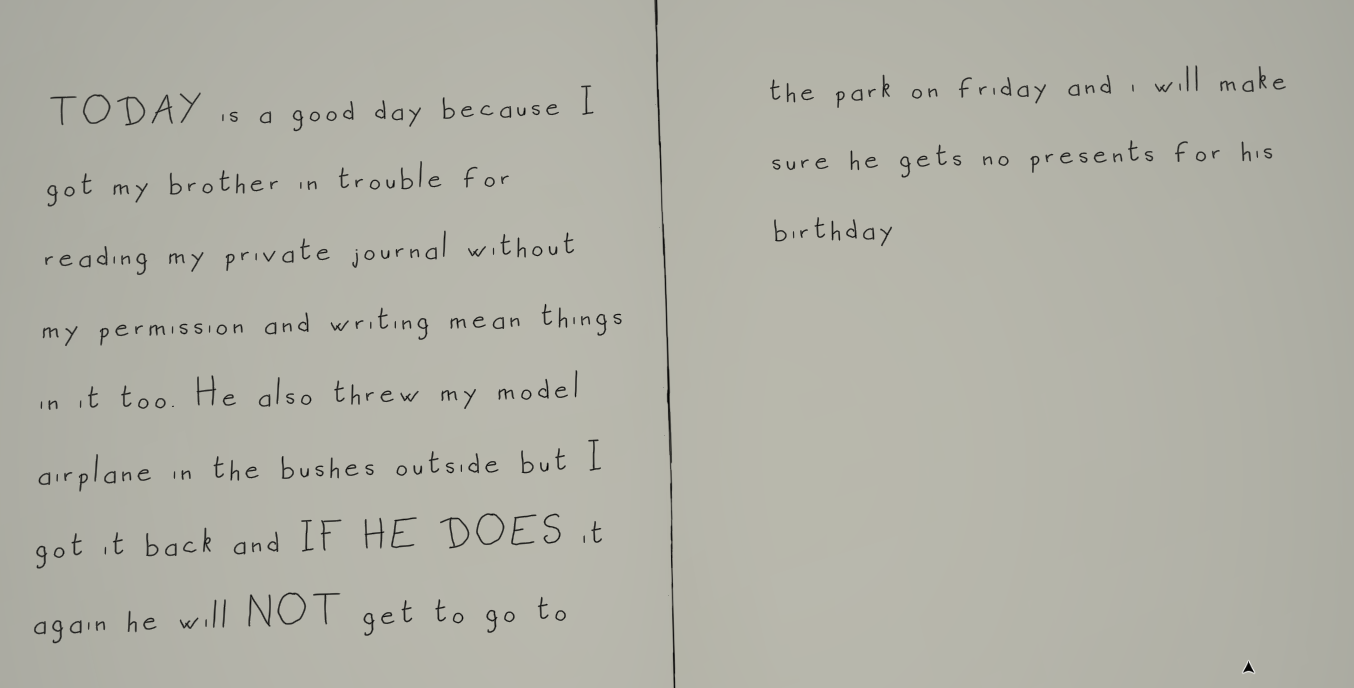 TODAY is a good day because I
got my brother in trouble for
reading my private journal without
my permission and writing mean things
in it too. He also threw my model
airplane in the bushes outside but I
got it back and IF HE DOES it
again he will NOT get to go to
the park on friday and i will make
sure he gets no presents for his
birthday